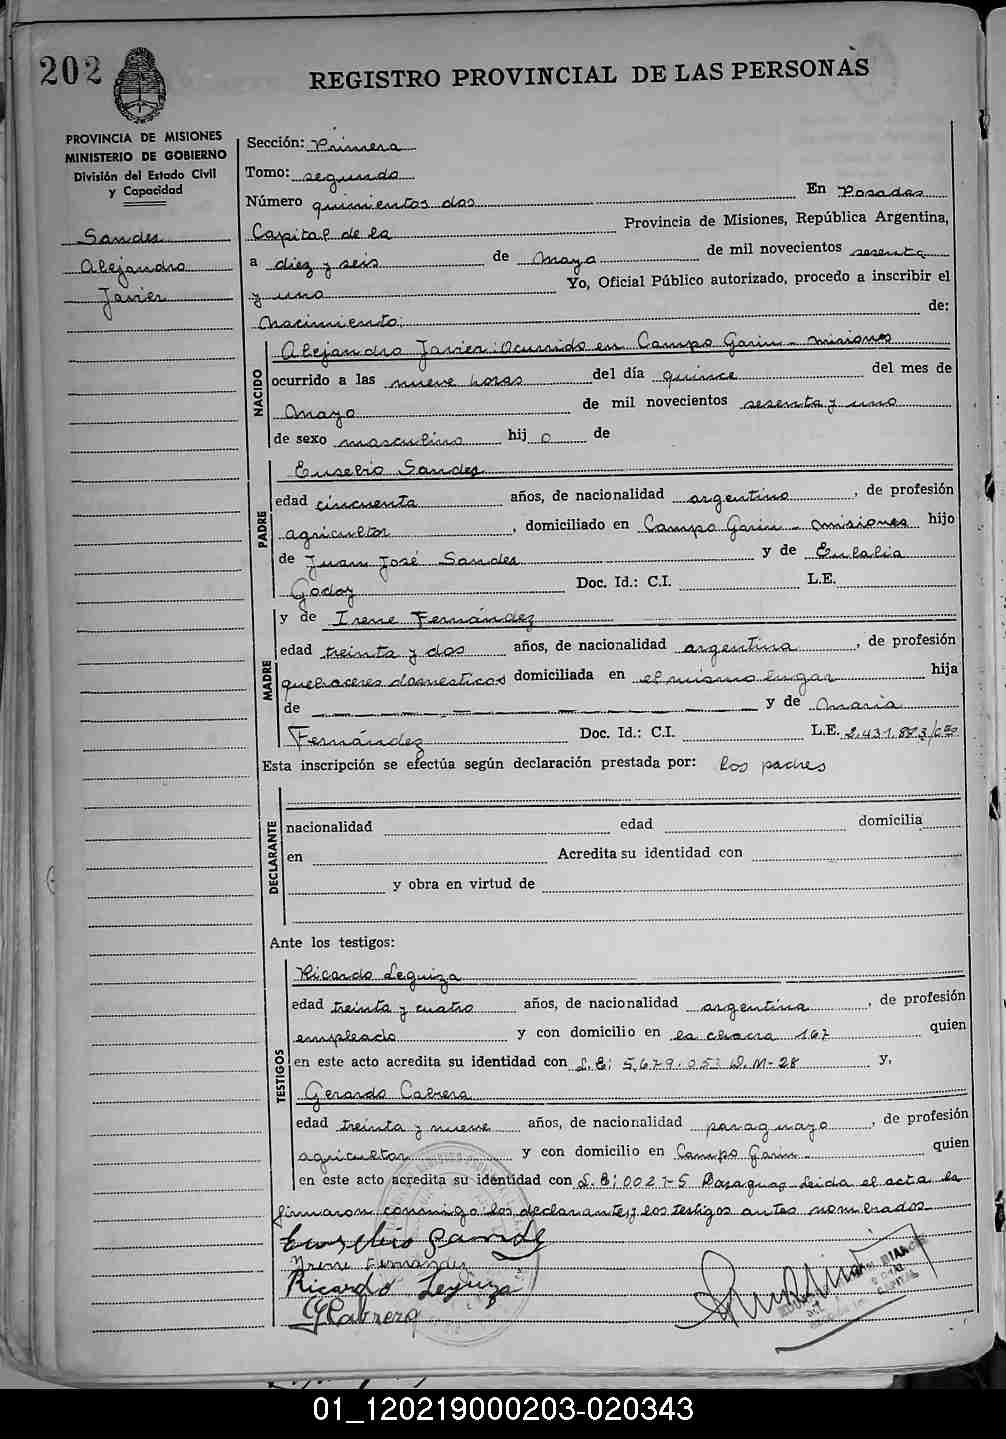 202
REGISTRO PROVINCIAL DE LAS PERSONAS
PROVINCIA DE MISIONES
MINISTERIO DE GOBIERNO
División del Estado Civil
y Capacidad
Sandes
Alejandro
Javier
Sección: Primera
Tomo: segundo
Número quinientos dos En Posadas
Capital de la Provincia de Misiones, República Argentina,
a diez y seis de Mayo de mil novecientos sesenta
y uno Yo, Oficial Público autorizado, procedo a inscribir el
Nacimiento: de:
NACIDO
Alejandro Javier: Ocurrido en Campo Garin - Misiones
ocurrido a las nueve horas del día quince del mes de
Mayo de mil novecientos sesenta y uno
de sexo masculino hij o de
PADRE
Eusebio Sandes
edad cincuenta años, de nacionalidad argentino, de profesión
agricultor, domiciliado en Campo Garin - Misiones hijo
de Juan José Sandes y de Eulalia
Godoy Doc. Id.: C.I. L.E.
MADRE
y de Irene Fernández
edad treinta y dos años, de nacionalidad argentina, de profesión
quehaceres domesticos domiciliada en el mismo lugar hija
de — — — y de María
Fernández Doc. Id.: C.I. L.E.
Esta inscripción se efectúa según declaración prestada por: los padres
DECLARANTE
nacionalidad edad domicilia
en Acredita su identidad con
y obra en virtud de
Ante los testigos:
TESTIGOS
Ricardo Leguiza
edad treinta y cuatro años, de nacionalidad argentina, de profesión
empleado y con domicilio en la chacra 167 quien
en este acto acredita su identidad con L.E: 5.679.053 D.M-28 y,
Gerardo Cabrera
edad treinta y nueve años, de nacionalidad paraguayo, de profesión
agricultor y con domicilio en Campo Garin quien
en este acto acredita su identidad con Paraguay Leida el acta la
firmaron conmigo los declarantes y los testigos antes nombrados
Eusebio Sandes
Irene Fernandez
Ricardo Leguiza
G Cabrera
CAPITAL
01_120219000203-020343